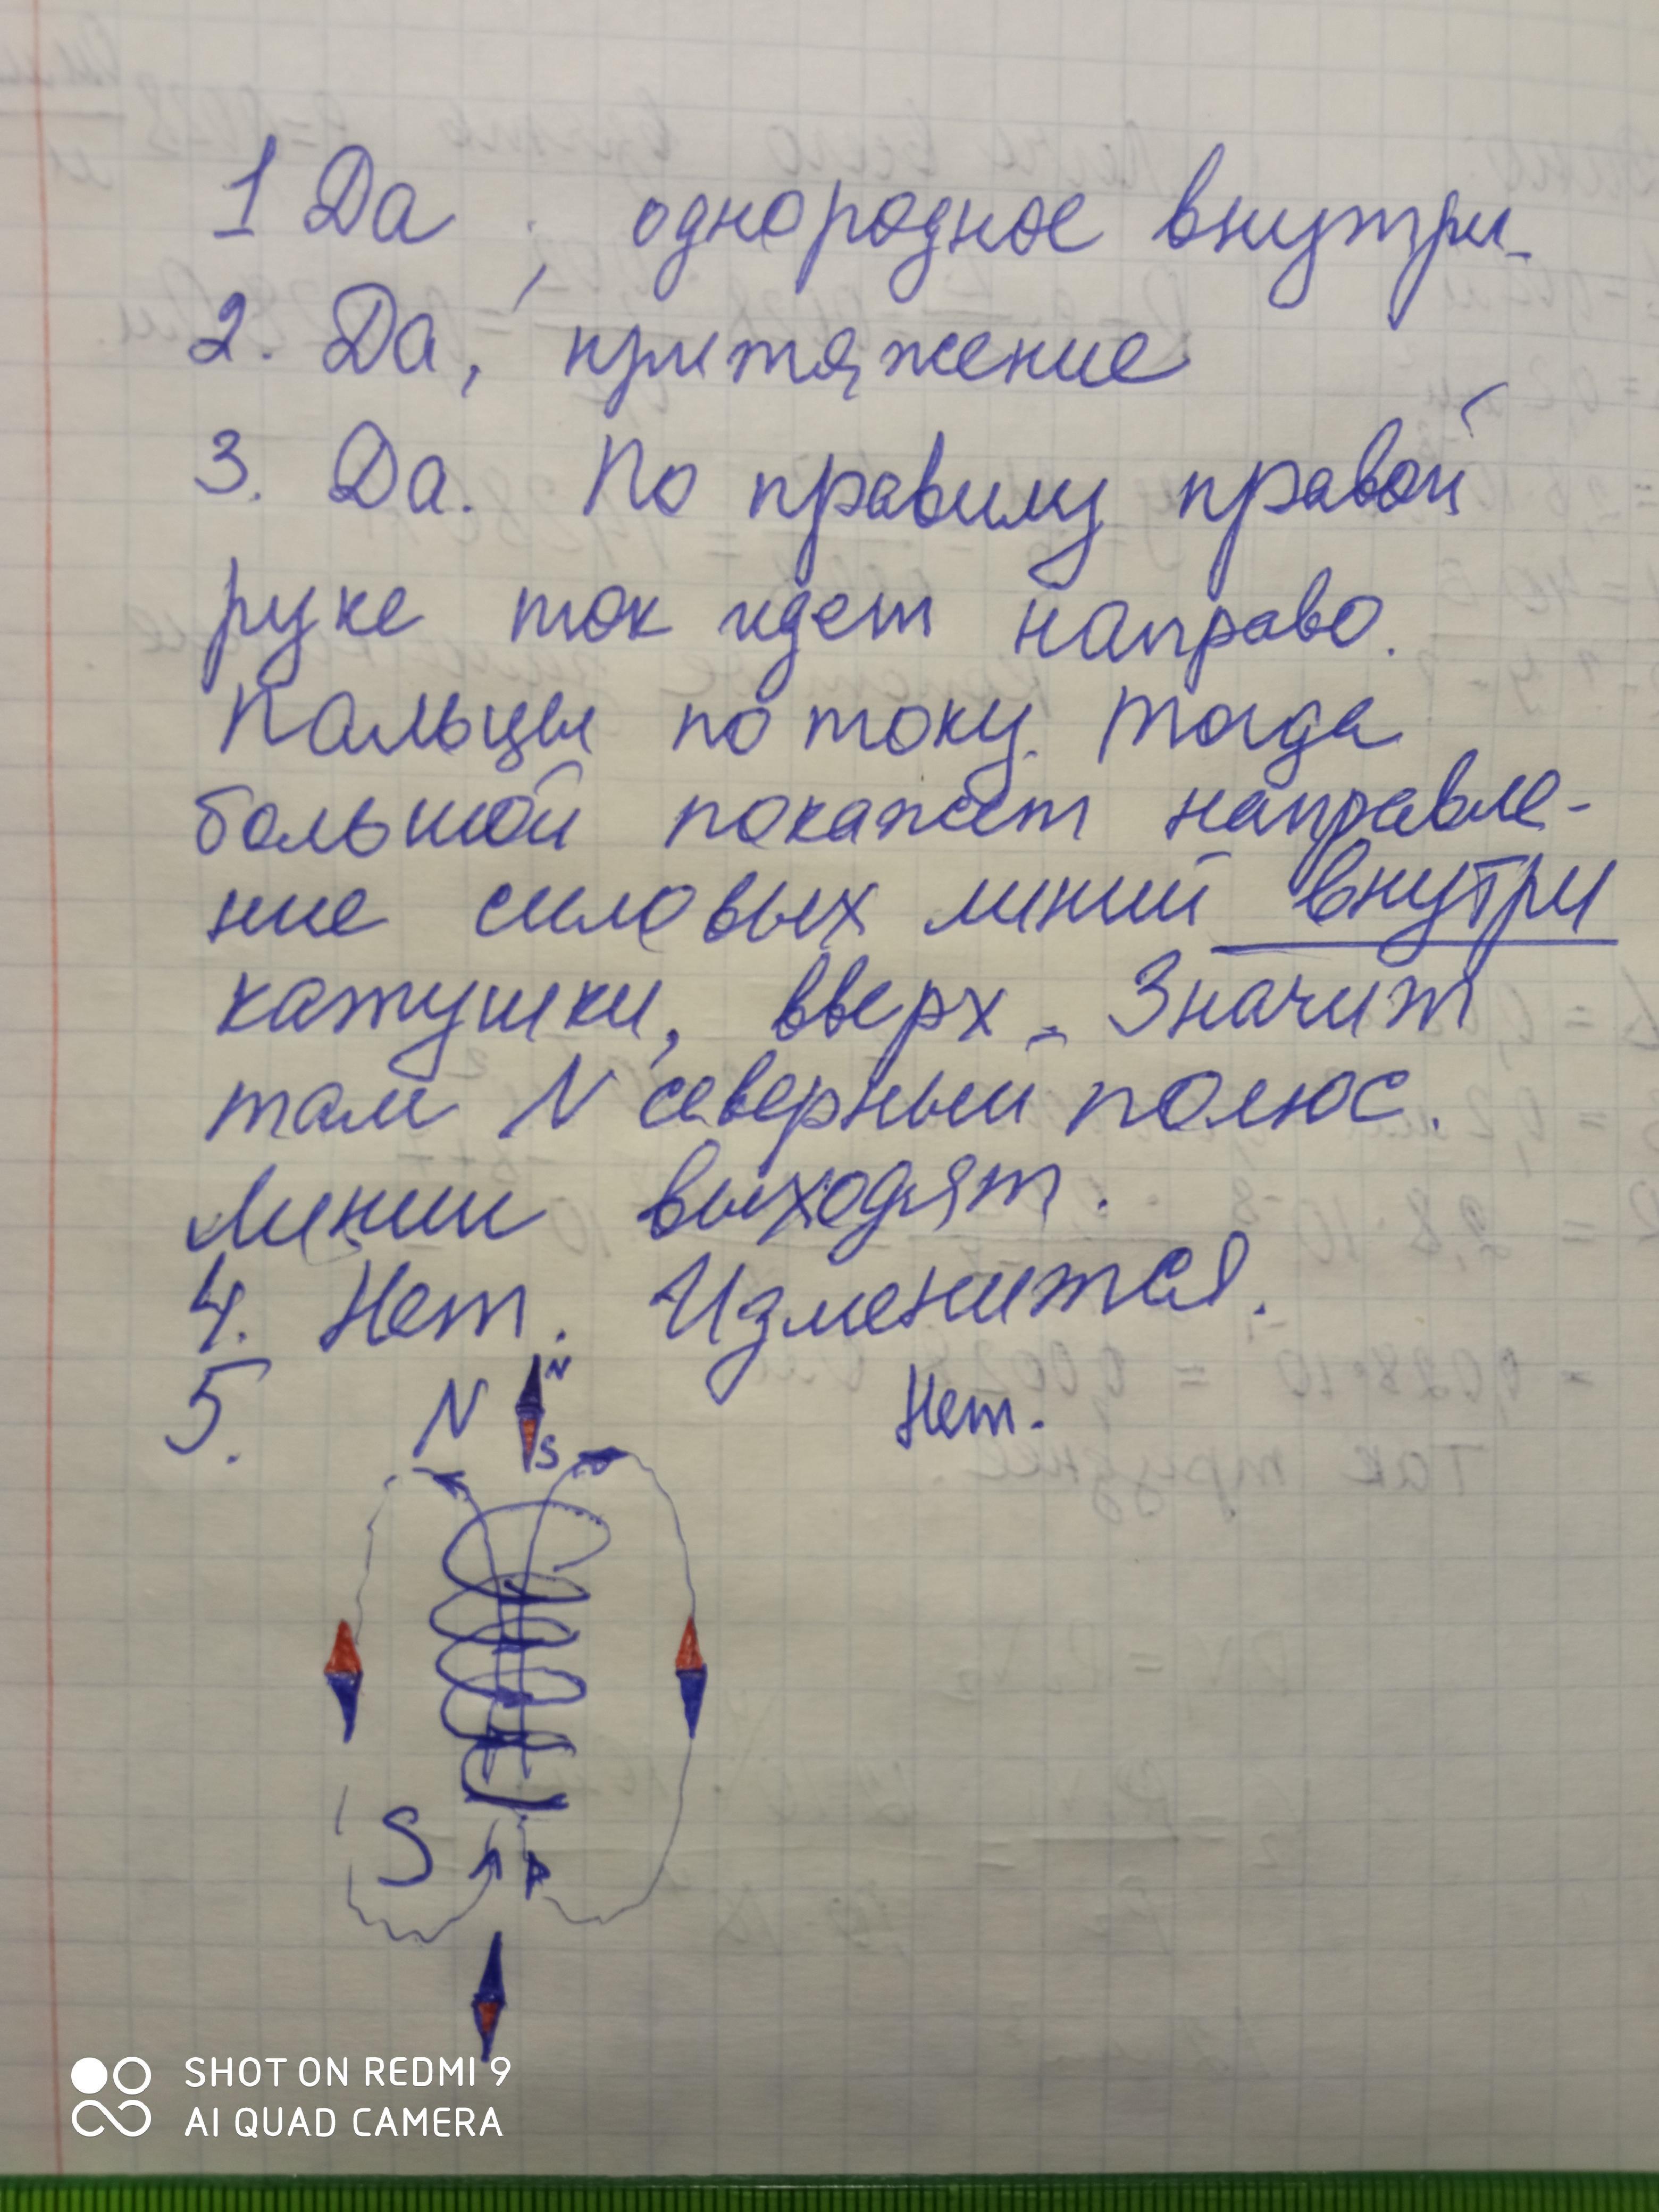 1 Да, однородное внутри.
2. Да, притяжение
3. Да. По правилу правой
руке ток идет направо.
Пальцы по току. Тогда
большой покажет направле-
ние силовых линий внутри
катушки, вверх. Значит
там N северный полюс.
Линии выходят.
4. Нет. Изменится.
5. N N S Нет.
S
SHOT ON REDMI 9
AI QUAD CAMERA